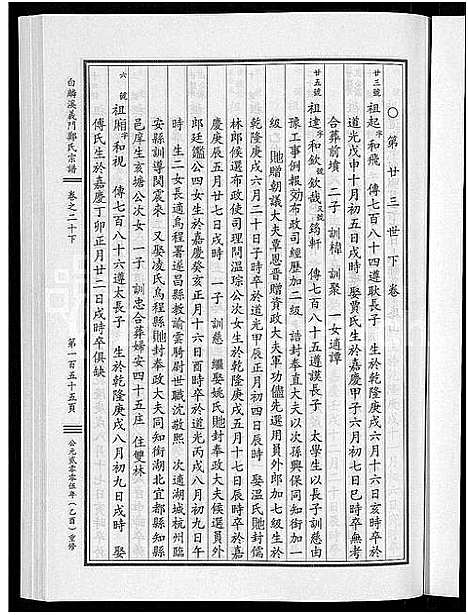 ○第廿三世下卷
廿三號 祖起 字和飛 傳七百八十四遵耿長子 生於乾隆庚戌六月十六日亥時卒於
道光戊申十月初五日戌時 娶賈氏生於嘉慶甲子六月初七日巳時卒無考
合葬前墳 二子 訓樟 訓聚 一女適譚
廿五號 祖達 字和欽 欽哉 又號筠軒 傳七百八十五遵謨長子 太學生以長子訓慈由
豫工事例報効布政司經歷加二級 誥封奉直大夫以次孫興保同知銜加一
級 貤贈朝議大夫覃恩晉贈資政大夫軍功儘先選用員外郎加七級生於
乾隆庚戌六月二十日子時卒於道光甲辰正月初四日辰時 娶溫氏貤封儒
林郎候選布政使司理問溫琮公次女生於乾隆庚戌五月十七日辰時卒於嘉
慶庚辰五月廿七日戌時 一子 訓慈 繼娶姚氏貤封奉政大夫候選員外
郎廷鑑公四女生於嘉慶癸亥正月十六日酉時卒於道光丙戌八月初九日午
時 生二女長適烏程署遂昌縣教諭雲騎尉世職沈敬熙 次適湖城杭州臨
安縣訓導閔震來 又娶凌氏烏程縣貤封奉政大夫同知銜湖北宜都縣知縣
邑庠生亥塘公次女 一子 訓忠合葬婦安四十五庄 住雙林
六號 祖廂 字和視 傳七百八十六遵太長子 生於乾隆庚戌八月初九日戌時 娶
傅氏生於嘉慶丁卯正月廿二日戌時卒俱缺
白麟溪義門鄭氏宗譜
卷之二十下
第一百五十五頁
公元貳零零伍年(乙酉)重修